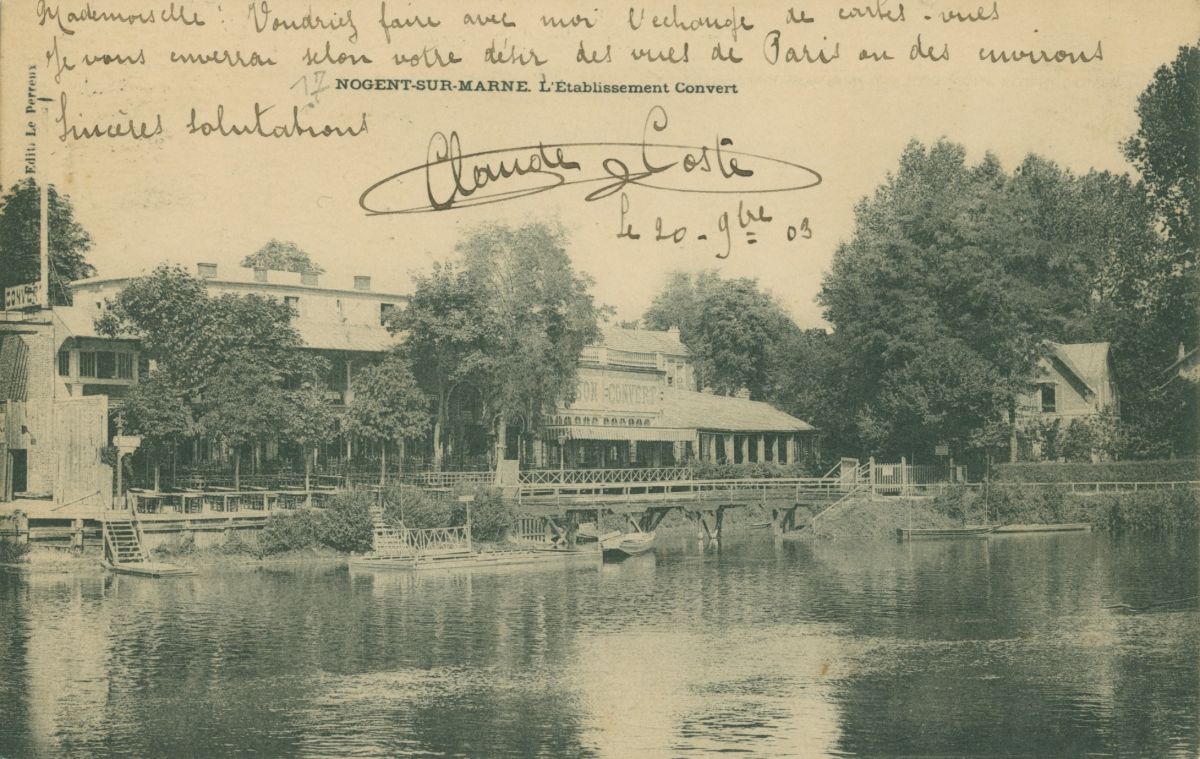 Mademoiselle : Voudriez faire avec moi l'echange de cartes-vues
Je vous enverrai selon votre désir des vues de Paris ou des environs
17
NOGENT-SUR-MARNE. L'Établissement Convert
Sincères salutations
Claude Coste
Le 20-9bre 03
Edit. Le Perreux
CONVERT
SON CONVERT